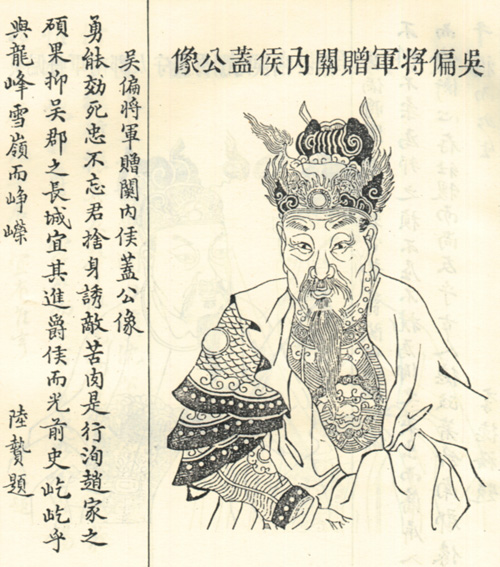 吳偏将軍贈關内侯蓋公像
吳偏將軍贈関内侯蓋公像
勇能効死忠不忘君捨身誘敵苦肉是行洵趙家之
碩果抑吳郡之長城宜其進爵侯而光前史屹屹乎
與龍峰雪嶺而崢嶸　陸贄題